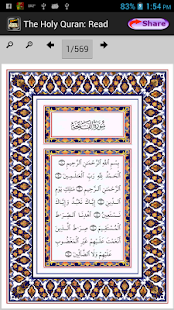 83% 1:54 PM
The Holy Quran: Read
Share
1/569
سورة الفاتحة
بسم الله الرحمن الرحيم ۝
الحمد لله رب العلمين ۝
الرحمن الرحيم ۝ ملك يوم
الدين ۝ إياك نعبد وإياك
نستعين ۝ اهدنا الصراط
المستقيم ۝ صراط الذين
أنعمت عليهم غير المغضوب
عليهم ولا الضالين ۝